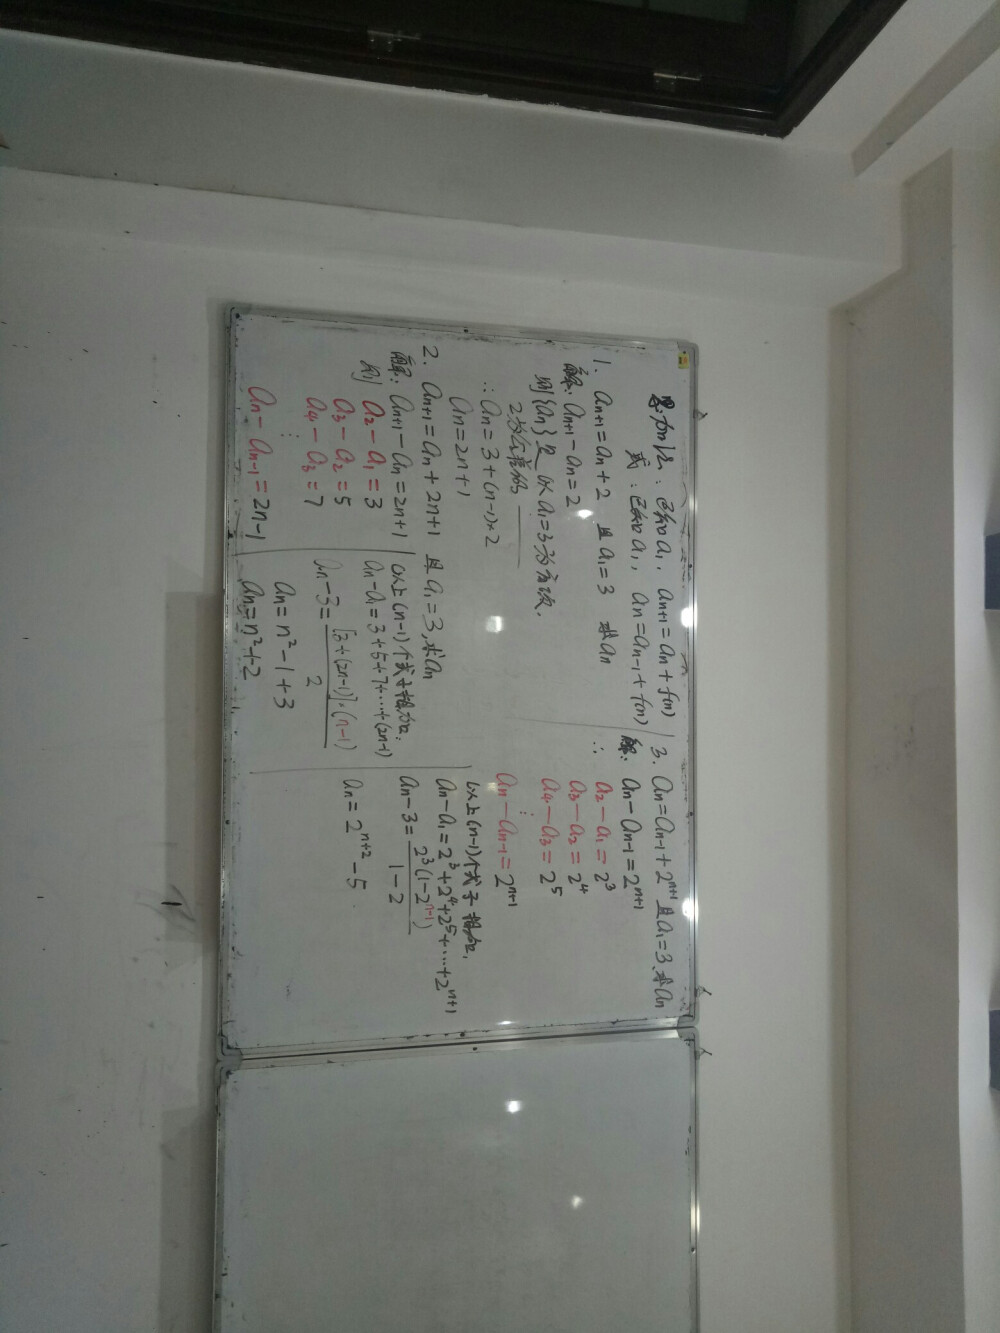 累加法：已知a₁，aₙ₊₁=aₙ+f(n)
或：已知a₁，aₙ=aₙ₋₁+f(n)
1. aₙ₊₁=aₙ+2 且a₁=3 求aₙ
解：aₙ₊₁-aₙ=2
则{aₙ}是以a₁=3为首项，
2为公差的
∴aₙ=3+(n-1)×2
aₙ=2n+1
2. aₙ₊₁=aₙ+2n+1 且a₁=3,求aₙ
解：aₙ₊₁-aₙ=2n+1
则 a₂-a₁=3
a₃-a₂=5
a₄-a₃=7
⋮
aₙ-aₙ₋₁=2n-1
以上(n-1)个式子相加：
aₙ-a₁=3+5+7+…+(2n-1)
aₙ-3=[3+(2n-1)]·(n-1)/2
aₙ=n²-1+3
aₙ=n²+2
3. aₙ=aₙ₋₁+2ⁿ⁺¹ 且a₁=3.求aₙ
解：aₙ-aₙ₋₁=2ⁿ⁺¹
∴ a₂-a₁=2³
a₃-a₂=2⁴
a₄-a₃=2⁵
⋮
aₙ-aₙ₋₁=2ⁿ⁺¹
以上(n-1)个式子相加，
aₙ-a₁=2³+2⁴+2⁵+…+2ⁿ⁺¹
aₙ-3=2³(1-2ⁿ⁻¹)/1-2
aₙ=2ⁿ⁺²-5